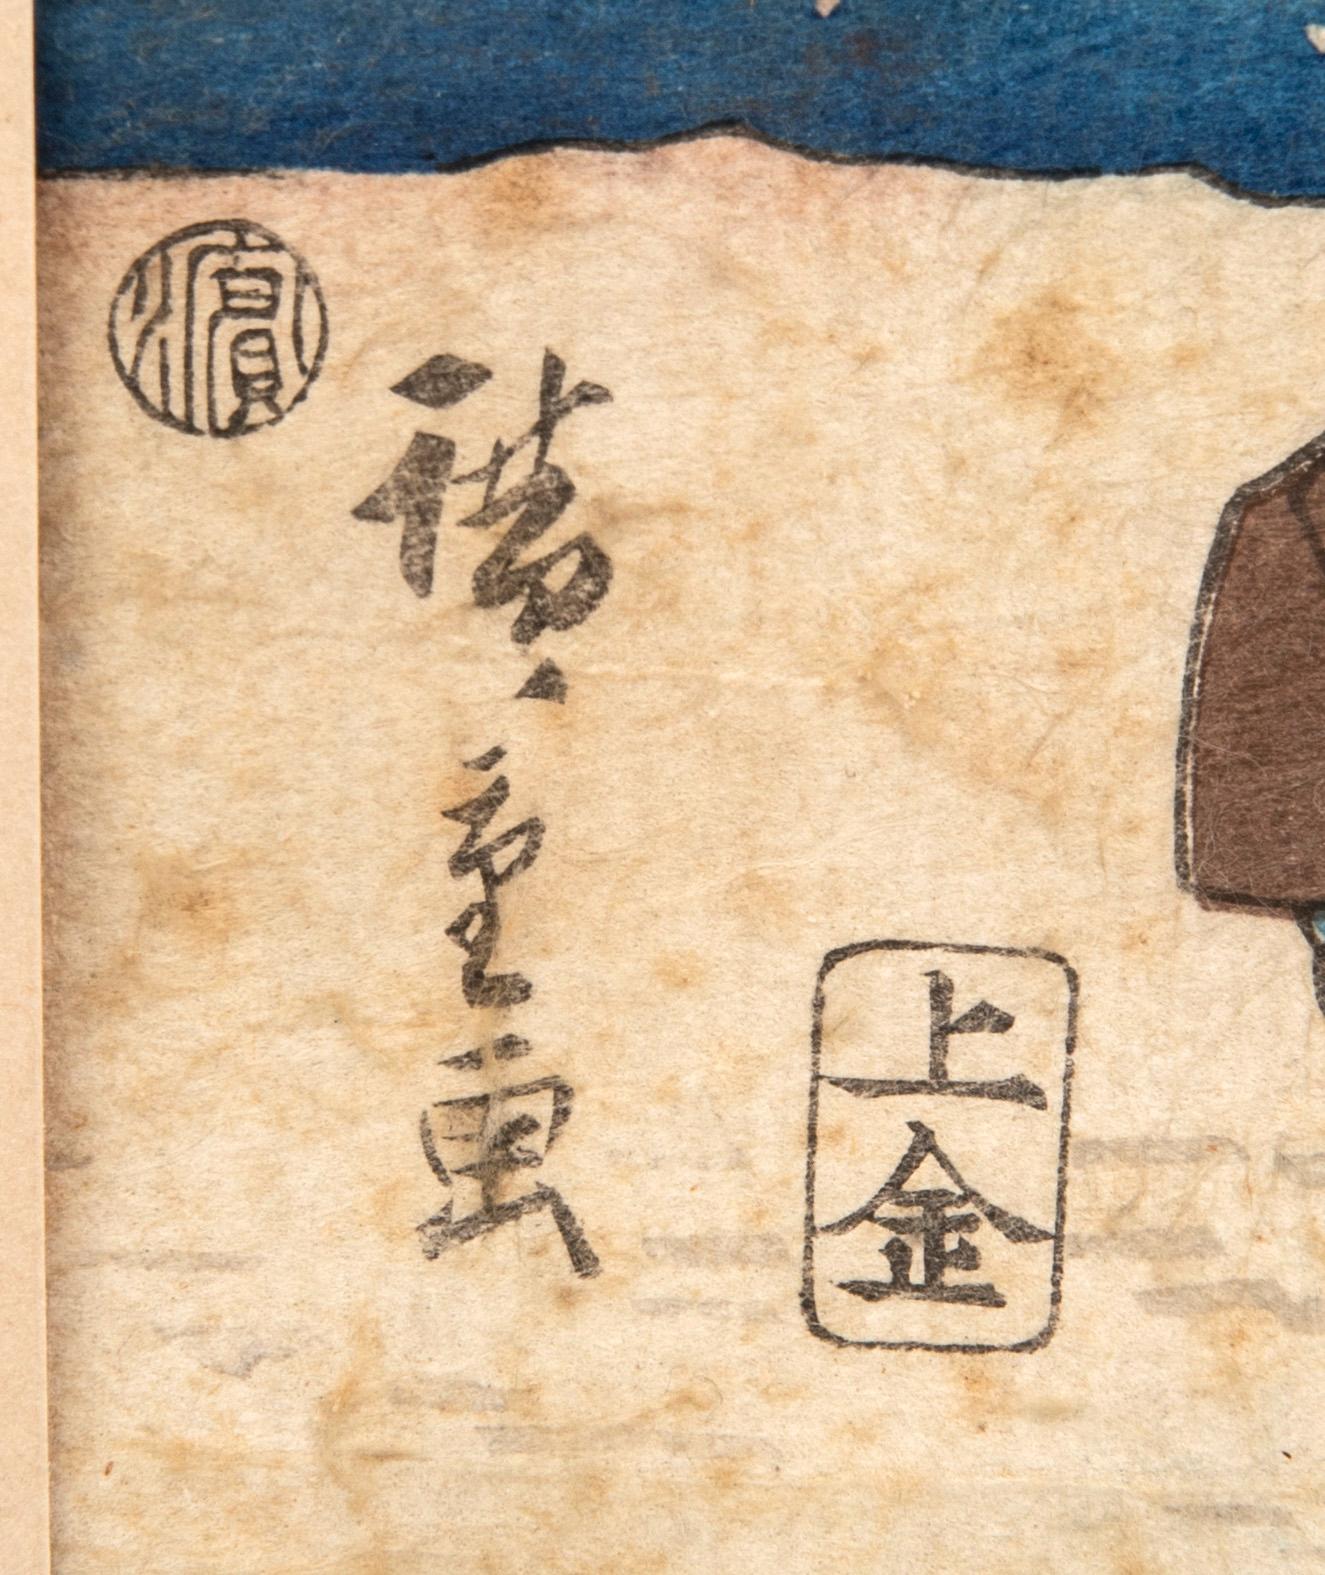 濵
廣重画
上金